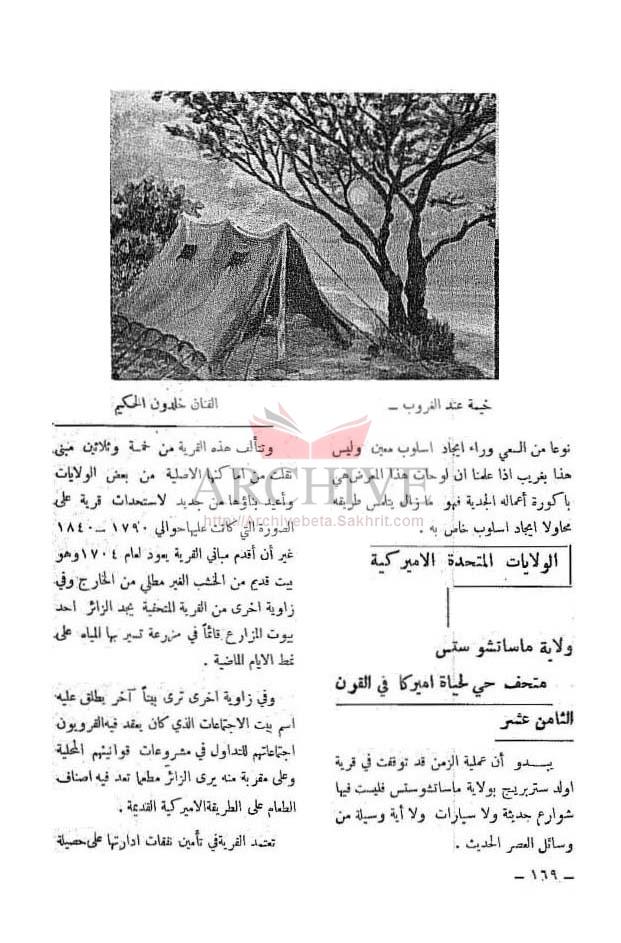 خيمة عند الغروب - الفنان خلدون الحكيم
نوعا من السعي وراء ايجاد اسلوب معين وليس
هذا بغريب اذا علمنا ان لوحات هذا المعرض هي
باكورة أعماله الجدية فهو ما زال يتلمس طريقه
محاولا ايجاد اسلوب خاص به .
الولايات المتحدة الاميركية
ولاية ماساتشوستس
متحف حي لحياة اميركا في القرن
الثامن عشر
يبدو أن عملية الزمن قد توقفت في قرية
اولد ستربريج بولاية ماساتشوستس فليست فيها
شوارع حديثة ولا سيارات ولا أية وسيلة من
وسائل العصر الحديث .
وتتألف هذه القرية من خمسة وثلاثين مبنى
نقلت من اماكنها الاصلية من بعض الولايات
وأعيد بناؤها من جديد لاستحداث قرية على
الصورة التي كانت عليها حوالي ١٧٩٠ - ١٨٤٠
غير أن أقدم مباني القرية يعود لعام ١٧٠٤ وهو
بيت قديم من الخشب الغير مطلي من الخارج وفي
زاوية اخرى من القرية المتحفية يجد الزائر احد
بيوت المزارع قائما في مزرعة تسير بها المياه على
نمط الايام الماضية .
وفي زاوية اخرى ترى بيتاً آخر يطلق عليه
اسم بيت الاجتماعات الذي كان يعقد فيه القرويون
اجتماعاتهم للتداول في مشروعات قوانينهم المحلية
وعلى مقربة منه يرى الزائر مطعما تعد فيه اصناف
الطعام على الطريقة الاميركية القديمة .
تعتمد القرية في تأمين نفقات ادارتها على حصيلة
- ١٦٩ -
ARCHIVE
http://Archivebeta.Sakhrit.com